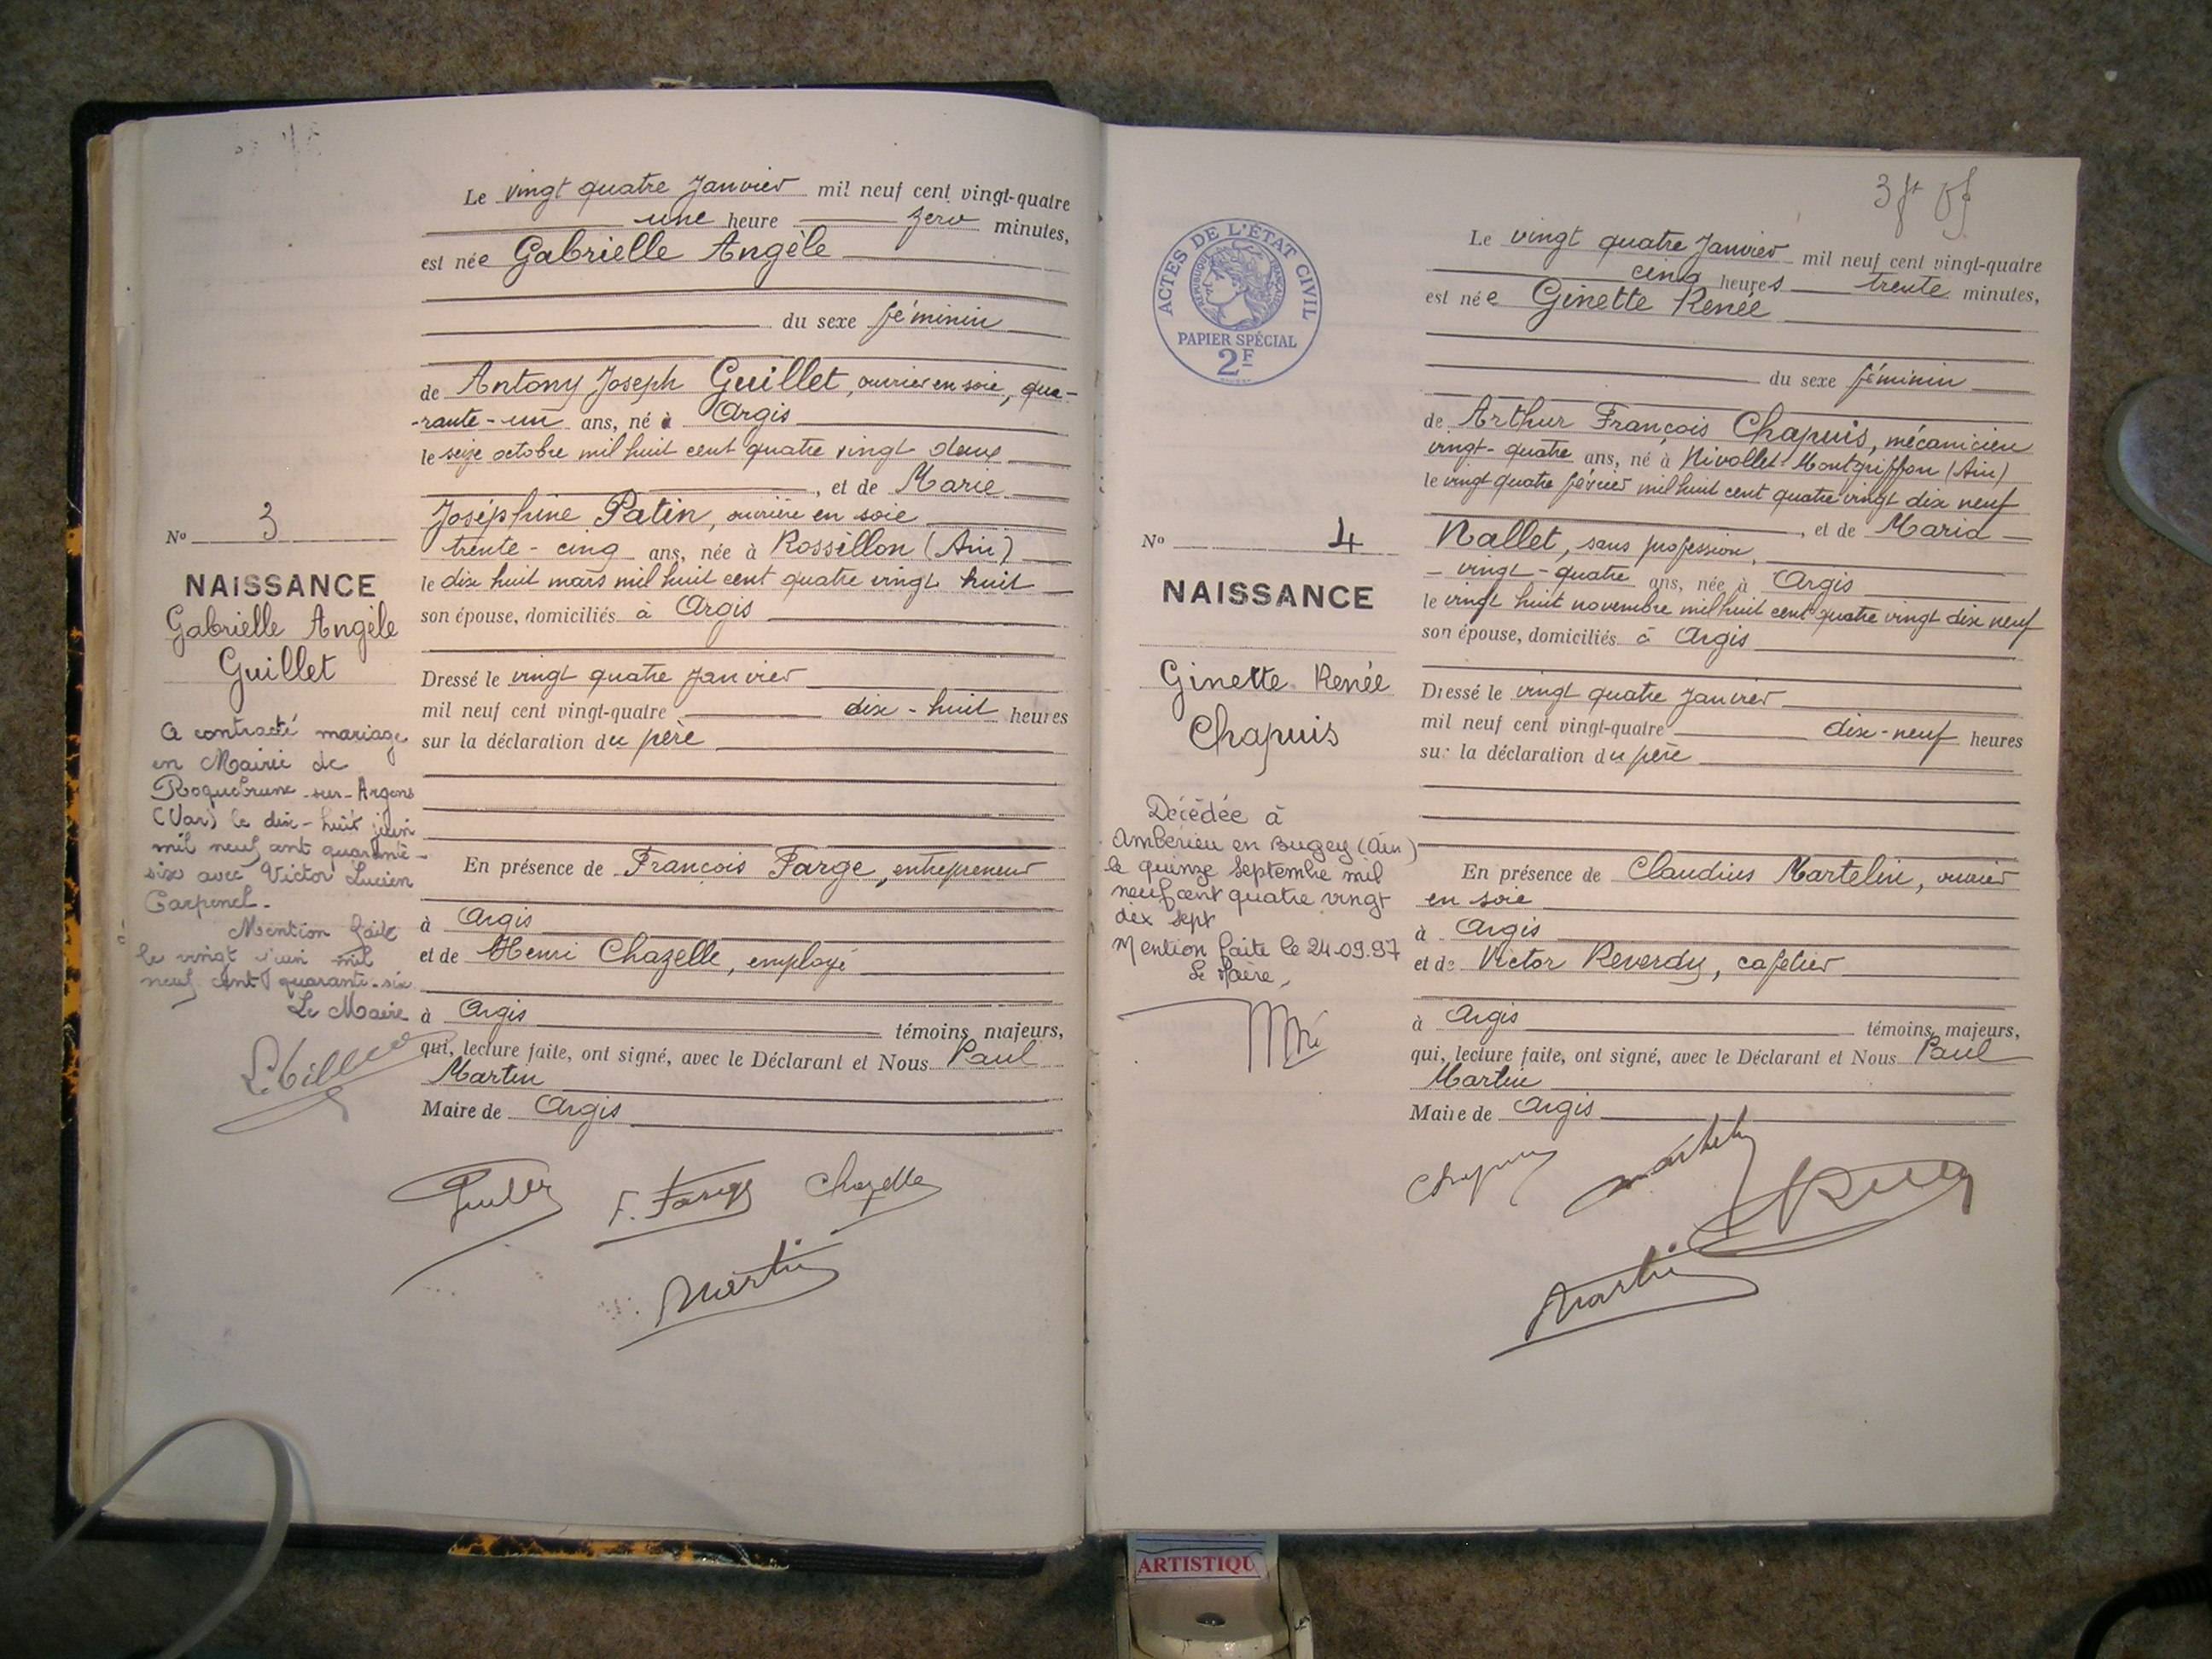 Le vingt quatre Janvier mil neuf cent vingt-quatre
une heure zero minutes,
est née Gabrielle Angèle
du sexe féminin
de Antony Joseph Guillet, ouvrier en soie, qua-
-rante-un ans, né à Argis
le seize octobre mil huit cent quatre vingt deux
, et de Marie
Joséphine Patin, ouvrière en soie
trente-cinq ans, née à Rossillon (Ain)
le dix huit mars mil huit cent quatre vingt huit
son épouse, domiciliés à Argis
Dressé le vingt quatre Janvier
mil neuf cent vingt-quatre dix-huit heures
sur la déclaration du père
En présence de François Farge, entrepreneur
à Argis
et de Henri Chazelle, employé
à Argis témoins majeurs,
qui, lecture faite, ont signé, avec le Déclarant et Nous Paul
Martin
Maire de Argis
F. Farge Chazelle
Martin
No 3
NAISSANCE
Gabrielle Angèle
Guillet
A contracté mariage
en Mairie de
Roquebrune-sur-Argens
(Var) le dix-huit juin
mil neuf cent quarante-
six avec Victor Lucien
Mention faite
le vingt juin mil
neuf cent quarante-six
Le Maire
ACTES DE L'ÉTAT CIVIL
RÉPUBLIQUE FRANÇAISE
PAPIER SPÉCIAL
2F
Le vingt quatre Janvier mil neuf cent vingt-quatre
cinq heures trente minutes,
est née Ginette Renée
du sexe féminin
de Arthur François Chapuis, mécanicien
vingt-quatre ans, né à Nivollet-Montgriffon (Ain)
le vingt quatre février mil huit cent quatre vingt dix neuf
, et de Maria
Nallet, sans profession,
vingt-quatre ans, née à Argis
le vingt huit novembre mil huit cent quatre vingt dix neuf
son épouse, domiciliés à Argis
Dressé le vingt quatre Janvier
mil neuf cent vingt-quatre dix-neuf heures
sur la déclaration du père
En présence de Claudius Martelin, ouvrier
en soie
à Argis
et de Victor Reverdy, cafetier
à Argis témoins majeurs,
qui, lecture faite, ont signé, avec le Déclarant et Nous Paul
Martin
Maire de Argis
Chapuis
Martin
No 4
NAISSANCE
Ginette Renée
Chapuis
Décédée à
Ambérieu en Bugey (Ain)
le quinze Septembre mil
neuf cent quatre vingt
dix sept
Mention faite le 24.09.97
Le Maire,
ARTISTIQU